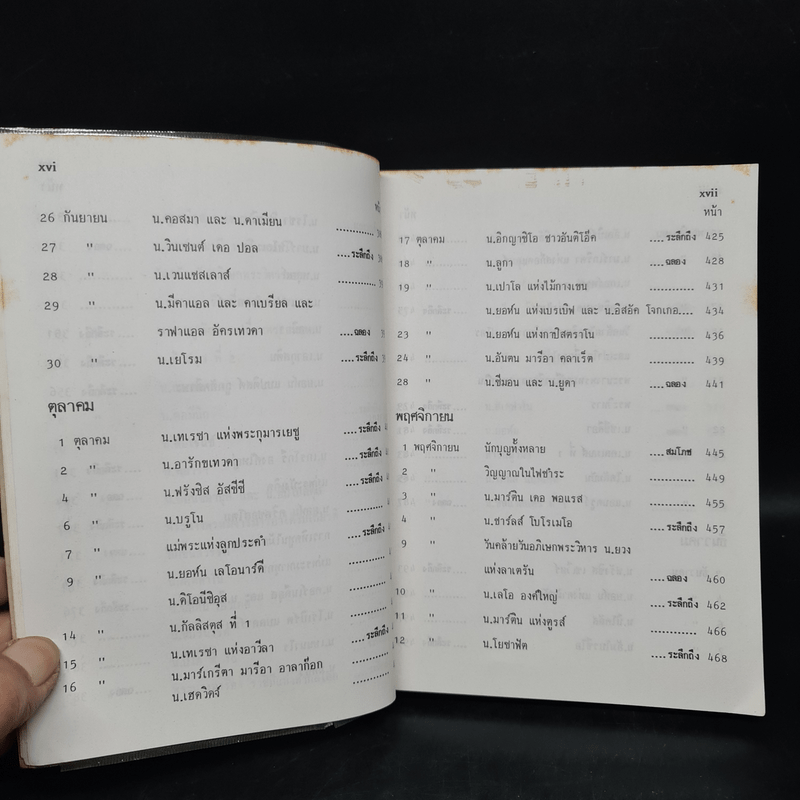 xvi
26 กันยายน น.คอสมา และ น.ดาเมียน ............
27 " น.วินเซนต์ เดอ ปอล ....ระลึกถึง
28 " น.เวนแชสเลาส์ ............
29 " น.มีคาแอล และ คาเบรียล และ
ราฟาแอล อัครเทวดา ....ฉลอง
30 " น.เยโรม ....ระลึกถึง
ตุลาคม
1 ตุลาคม น.เทเรซา แห่งพระกุมารเยซู ....ระลึกถึง
2 " น.อารักขเทวดา ....ระลึกถึง
4 " น.ฟรังซิส อัสซีซี ....ระลึกถึง
6 " น.บรูโน ............
7 " แม่พระแห่งลูกประคำ ....ระลึกถึง
9 " น.ยอห์น เลโอนาร์ดี ............
น.ดิโอนีซิอุส ............
14 " น.กัลลิสตุส ที่ 1 ............
15 " น.เทเรซา แห่งอาวีลา ....ระลึกถึง
16 " น.มาร์เกรีตา มารีอา อาลาก๊อก ............
น.เฮดวิดจ์ ............
xvii
หน้า
17 ตุลาคม น.อิกญาซิโอ ชาวอันติโอ๊ค ....ระลึกถึง 425
18 " น.ลูกา ....ฉลอง 428
19 " น.เปาโล แห่งไม้กางเขน ............ 431
น.ยอห์น แห่งเบรเบิฟ และ น.อิสอัค โจกเกอ.... 434
23 " น.ยอห์น แห่งกาปิสตราโน ............ 436
24 " น.อันตน มารีอา คลาเร็ต ............ 439
28 " น.ซีมอน และ น.ยูดา ....ฉลอง 441
พฤศจิกายน
1 พฤศจิกายน นักบุญทั้งหลาย ....สมโภช 445
2 " วิญญาณในไฟชำระ ............ 449
3 " น.มาร์ติน เดอ พอแรส ............ 455
4 " น.ชาร์ลส์ โบโรเมโอ ....ระลึกถึง 457
9 " วันคล้ายวันอภิเษกพระวิหาร น.ยวง
แห่งลาเตรัน ....ฉลอง 460
10 " น.เลโอ องค์ใหญ่ ....ระลึกถึง 462
11 " น.มาร์ติน แห่งตูรส์ ............ 466
12 " น.โยซาฟัต ....ระลึกถึง 468